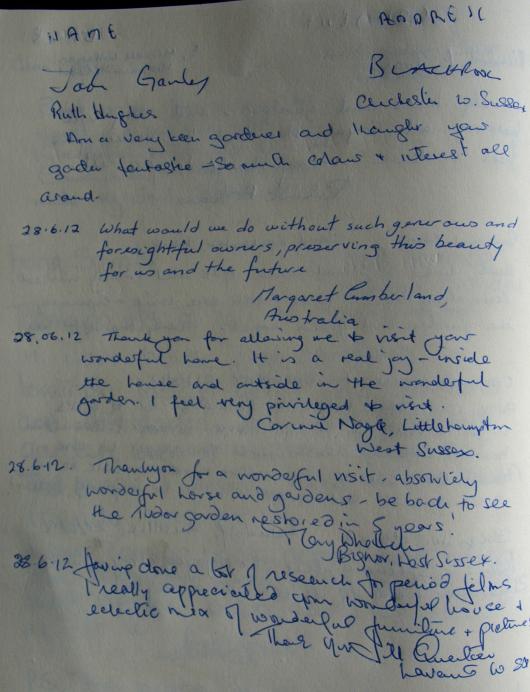 NAME ADDRESS
John Ganley BLACKROCK
Ruth Hughes Chichester W. Sussex
Am a very keen gardener and thought your
garden fantastic - So much colour + interest all
around.
28.6.12 What would we do without such generous and
foresightful owners, preserving this beauty
for us and the future
Margaret Cumberland,
Australia
28.06.12 Thank you for allowing me to visit your
wonderful home. It is a real joy - inside
the house and outside in the wonderful
garden. I feel very privileged to visit.
Corinne Nagle, Littlehampton
West Sussex.
28.6.12. Thankyou for a wonderful visit - absolutely
wonderful house and gardens - be back to see
the Tudor garden restored in 5 years!
Mary
Bignor, West Sussex.
28.6.12 Having done a lot of research for period films
I really appreciated your wonderful house +
eclectic mix of wonderful furniture + picture
Thank you Jill
Lavant W SS